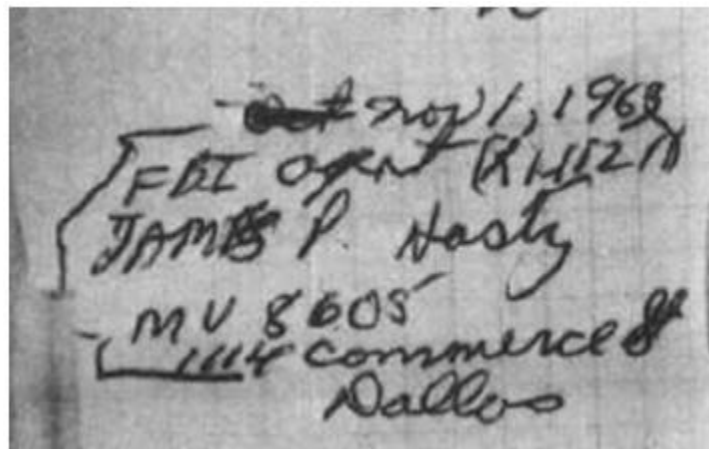 Nov 1, 1963
FBI agent
JAMES P. Hasty
MU 8605
1114 Commerce St
Dallas